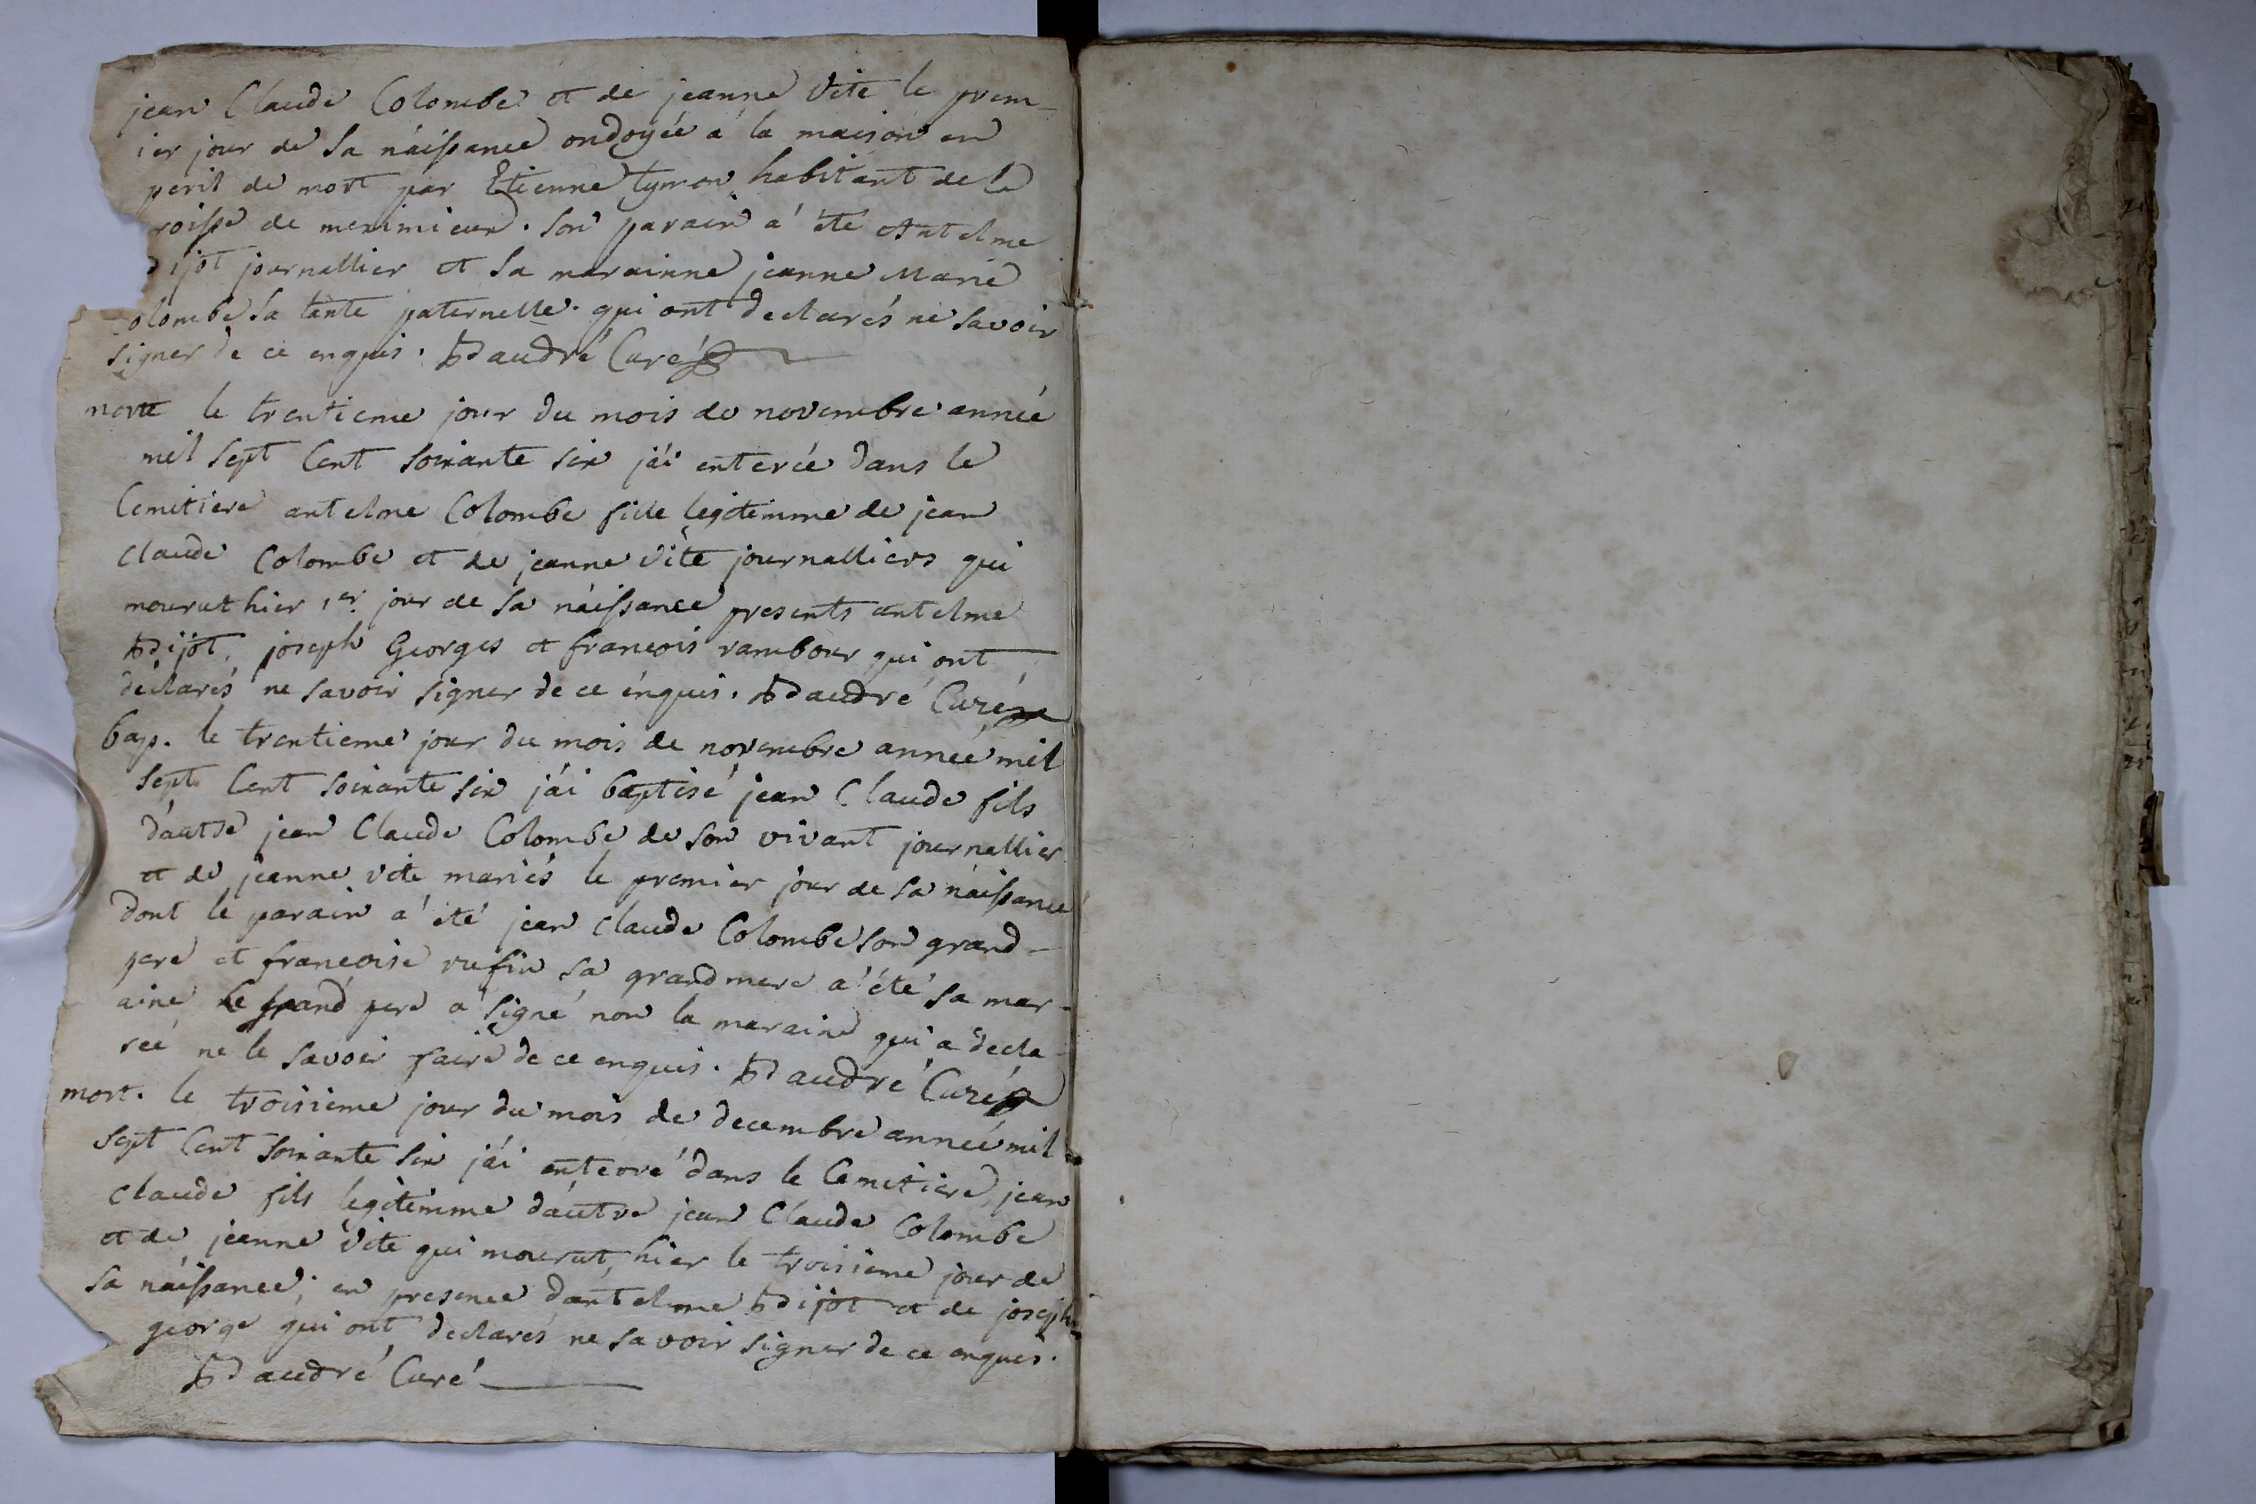 jean Claude Colombe et de jeanne Vite le prem-
ier jour de sa náissance ondoyée a la maison en
peril de mort par Etienne tymon habitant de la
roisse de meximieux. son parain a' été Antelme
ijot journallier et sa marainne jeanne Marie
olombe sa tante paternelle. qui ont declarés ne savoir
signer de ce enquis. Baudré Curé
morte le trentieme jour du mois de novembre année
mil sept Cent soixante six j'ái enterée dans le
Cemitiere antelme Colombe fille legitimme de jean
Claude Colombe et de jeanne Vite journalliers qui
mourut hier 1er. jour de sa náissance presents antelme
Bijot, joseph Georges et francois rambour qui ont
declarés ne savoir signer de ce enquis. Baudré Curé
bap. le trentieme jour du mois de novembre année mil
sept Cent soixante six j'ái baptisé jean Claude fils
d'autre jean Claude Colombe de son vivant journallier
et de jeanne vite mariés le premier jour de sa náissance
dont le parain a' été jean Claude Colombe son grand-
pere et francoise rufin sa grand mere a' été sa mar-
aine le grand pere a signé non la maraine qui a decla-
reé ne le savoir faire de ce enquis. Baudré Curé
mort. le troisieme jour du mois de decembre année mil
sept Cent soixante six j'ái enterré dans le Cemitiere, jean
Claude fils legitimme d'autre jean Claude Colombe
et de jeanne Vite qui mourut hier le troisieme jour de
sa náissance; en presence d'antelme Bijot et de joseph
george qui ont declarés ne savoir signer de ce enquis.
Baudré Curé